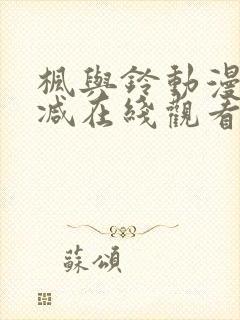 楓與鈴動漫
减在綫觀看
蘇頌